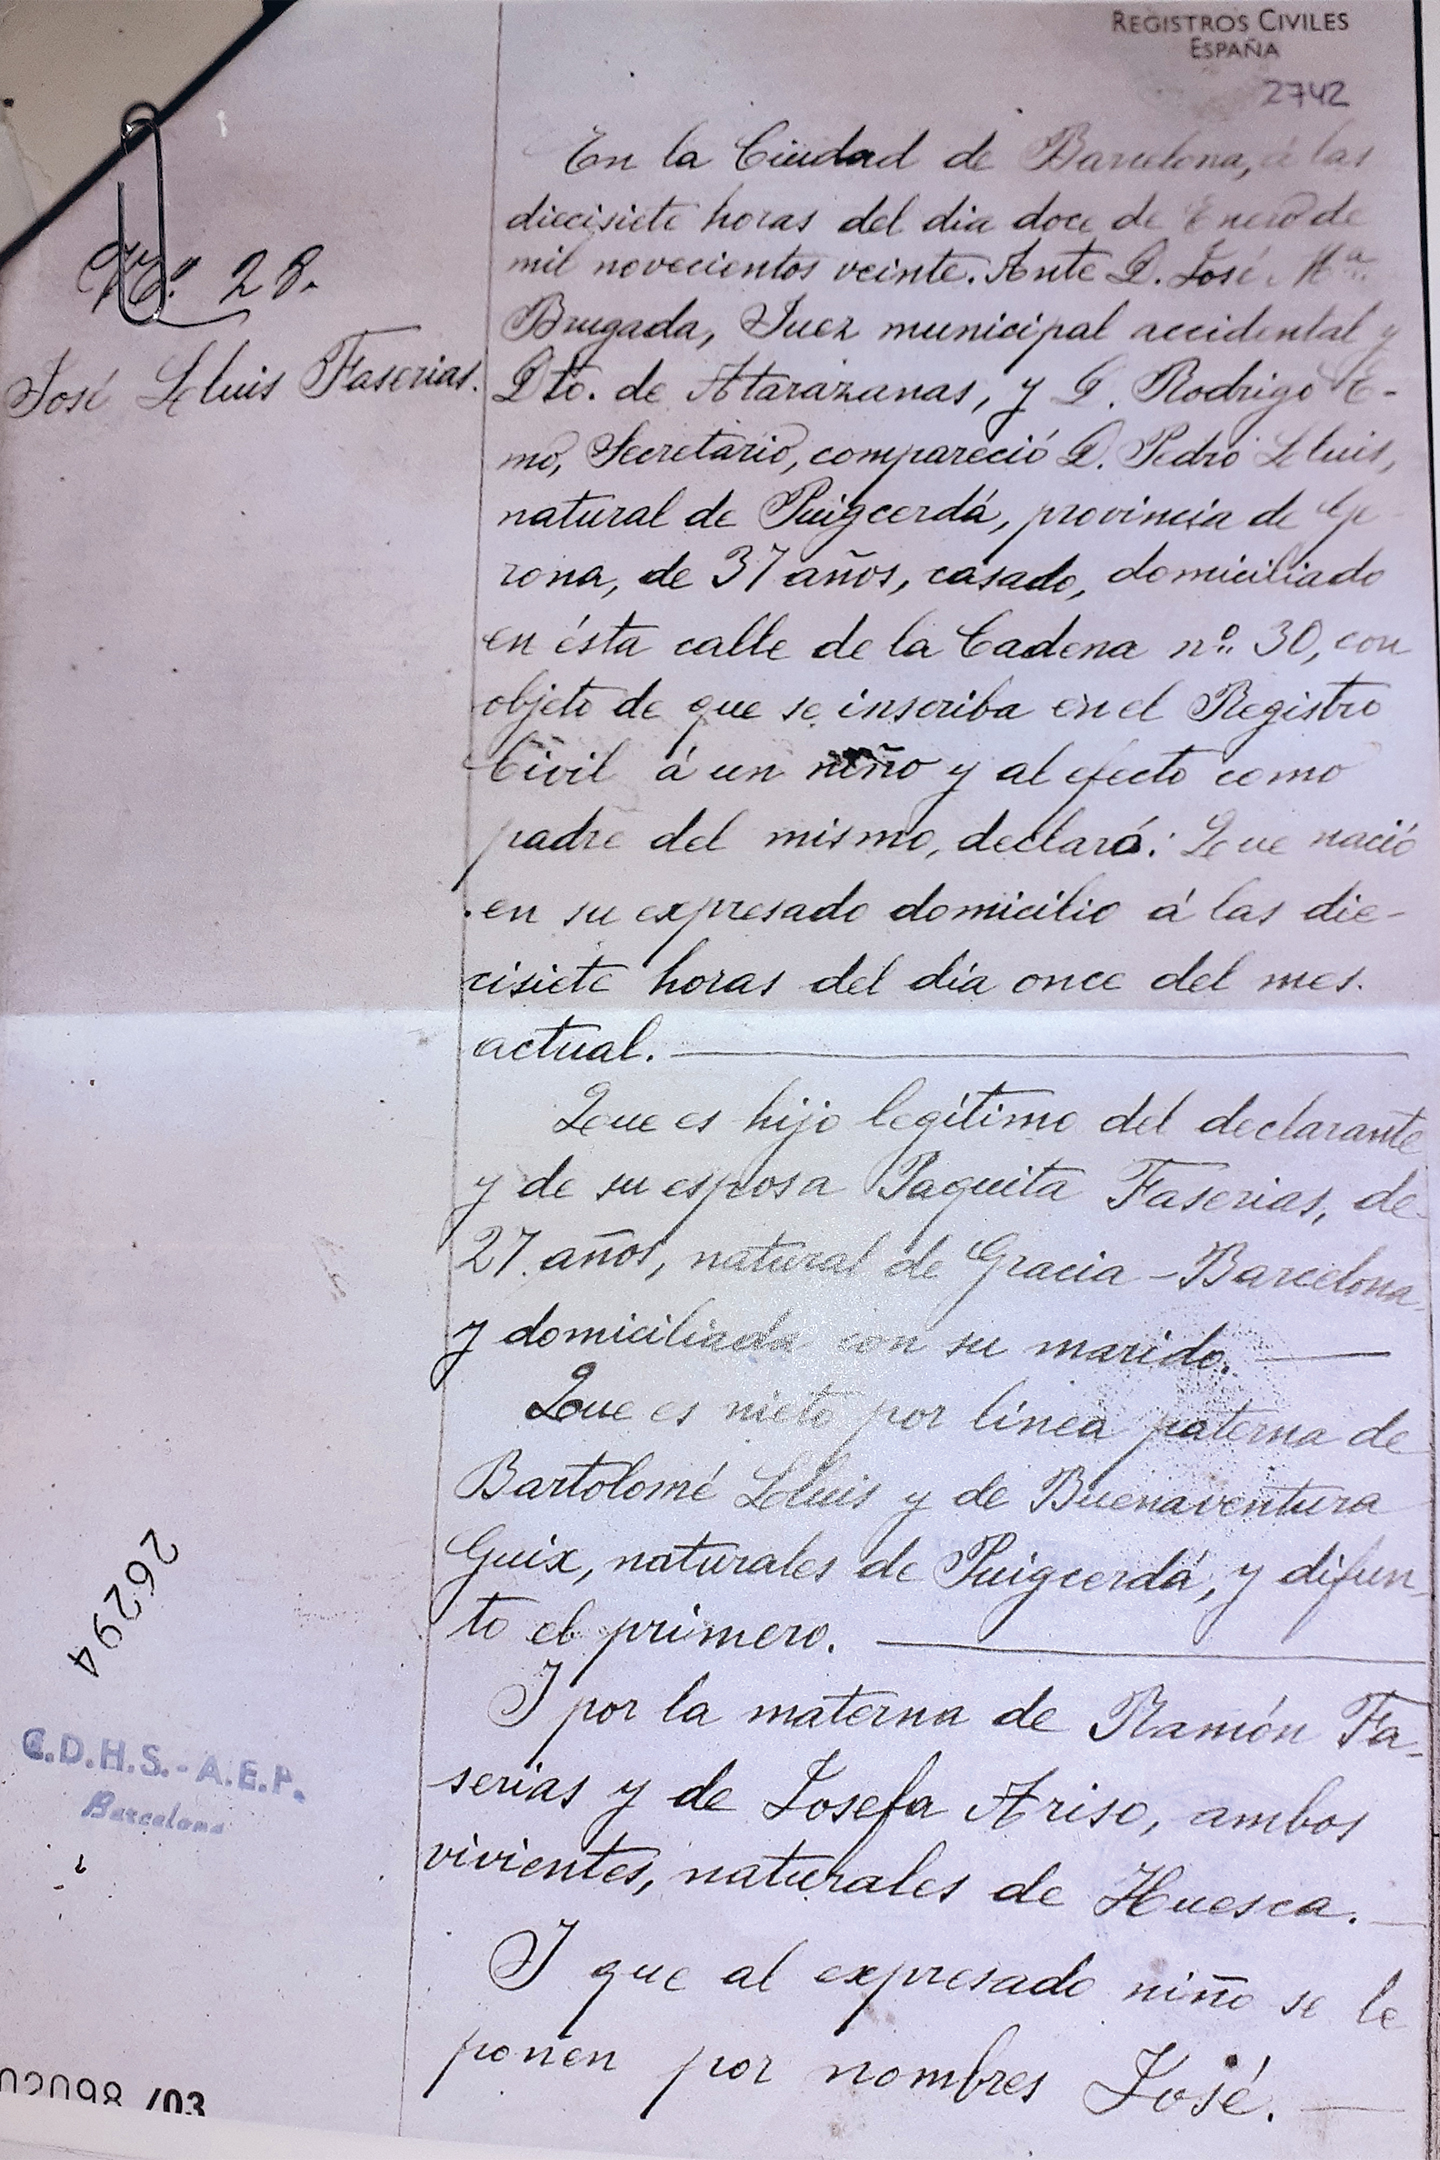 REGISTROS CIVILES
ESPAÑA
2742
Nº. 28.
José Lluis Faserias.
En la Ciudad de Barcelona, á las
diecisiete horas del dia doce de Enero de
mil novecientos veinte. Ante D. José Mª
Brugada, Juez municipal accidental y
Dto. de Atarazanas, y D. Rodrigo E-
mo, Secretario, compareció D. Pedro Lluis,
natural de Puigcerdá, provincia de Ge-
rona, de 37 años, casado, domiciliado
en ésta calle de la Cadena nº. 30, con
objeto de que se inscriba en el Registro
Civil á un niño y al efecto como
padre del mismo, declaró: Que nació
en su expresado domicilio á las die-
cisiete horas del día once del mes.
actual.
Que es hijo legítimo del declarante
y de su esposa Paquita Faserias, de
27 años, natural de Gracia - Barcelona
y domiciliada con su marido.
Que es nieto por línea paterna de
Bartolomé Lluis y de Buenaventura
Guix, naturales de Puigcerdá, y difun-
to el primero.
Y por la materna de Ramón Fa-
serias y de Josefa Ariso, ambos
vivientes, naturales de Huesca.
Y que al expresado niño se le
ponen por nombres José.
26294
C.D.H.S.-A.E.P.
Barcelona
02098 /03